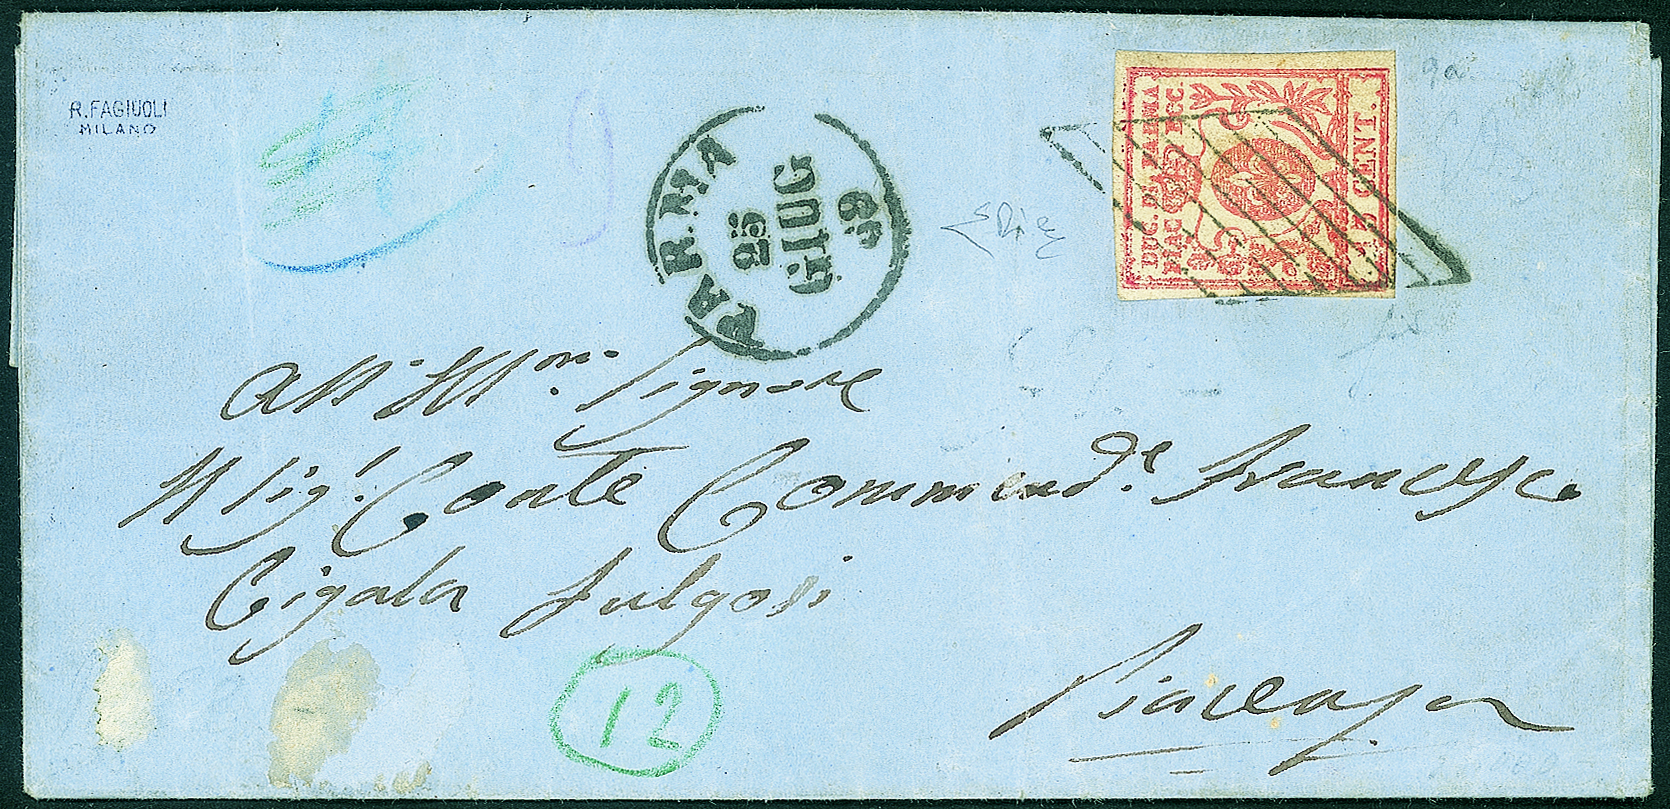 R. FAGIUOLI
MILANO
9a
DUC. DI PARMA
PIAC. ECC.
15 CENT.
PARMA
25
GIUG
59
All' Ill.mo Signore
Il Sig.r Conte Commend.e Francesco
Cigala Fulgosi
12
Piacenza